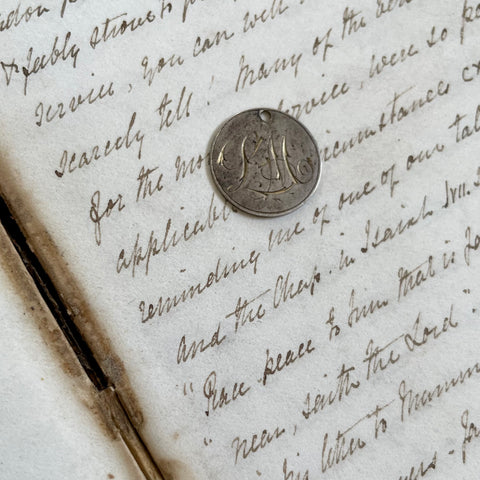 feebly strove to
service, you can well
scarcely tell! Many of the
for the service, were so
applicable circumstances
reminding me of one of our
and the Chap. in Isaiah lvii.
"Peace peace to him that is
" near, saith the Lord".
his letter to